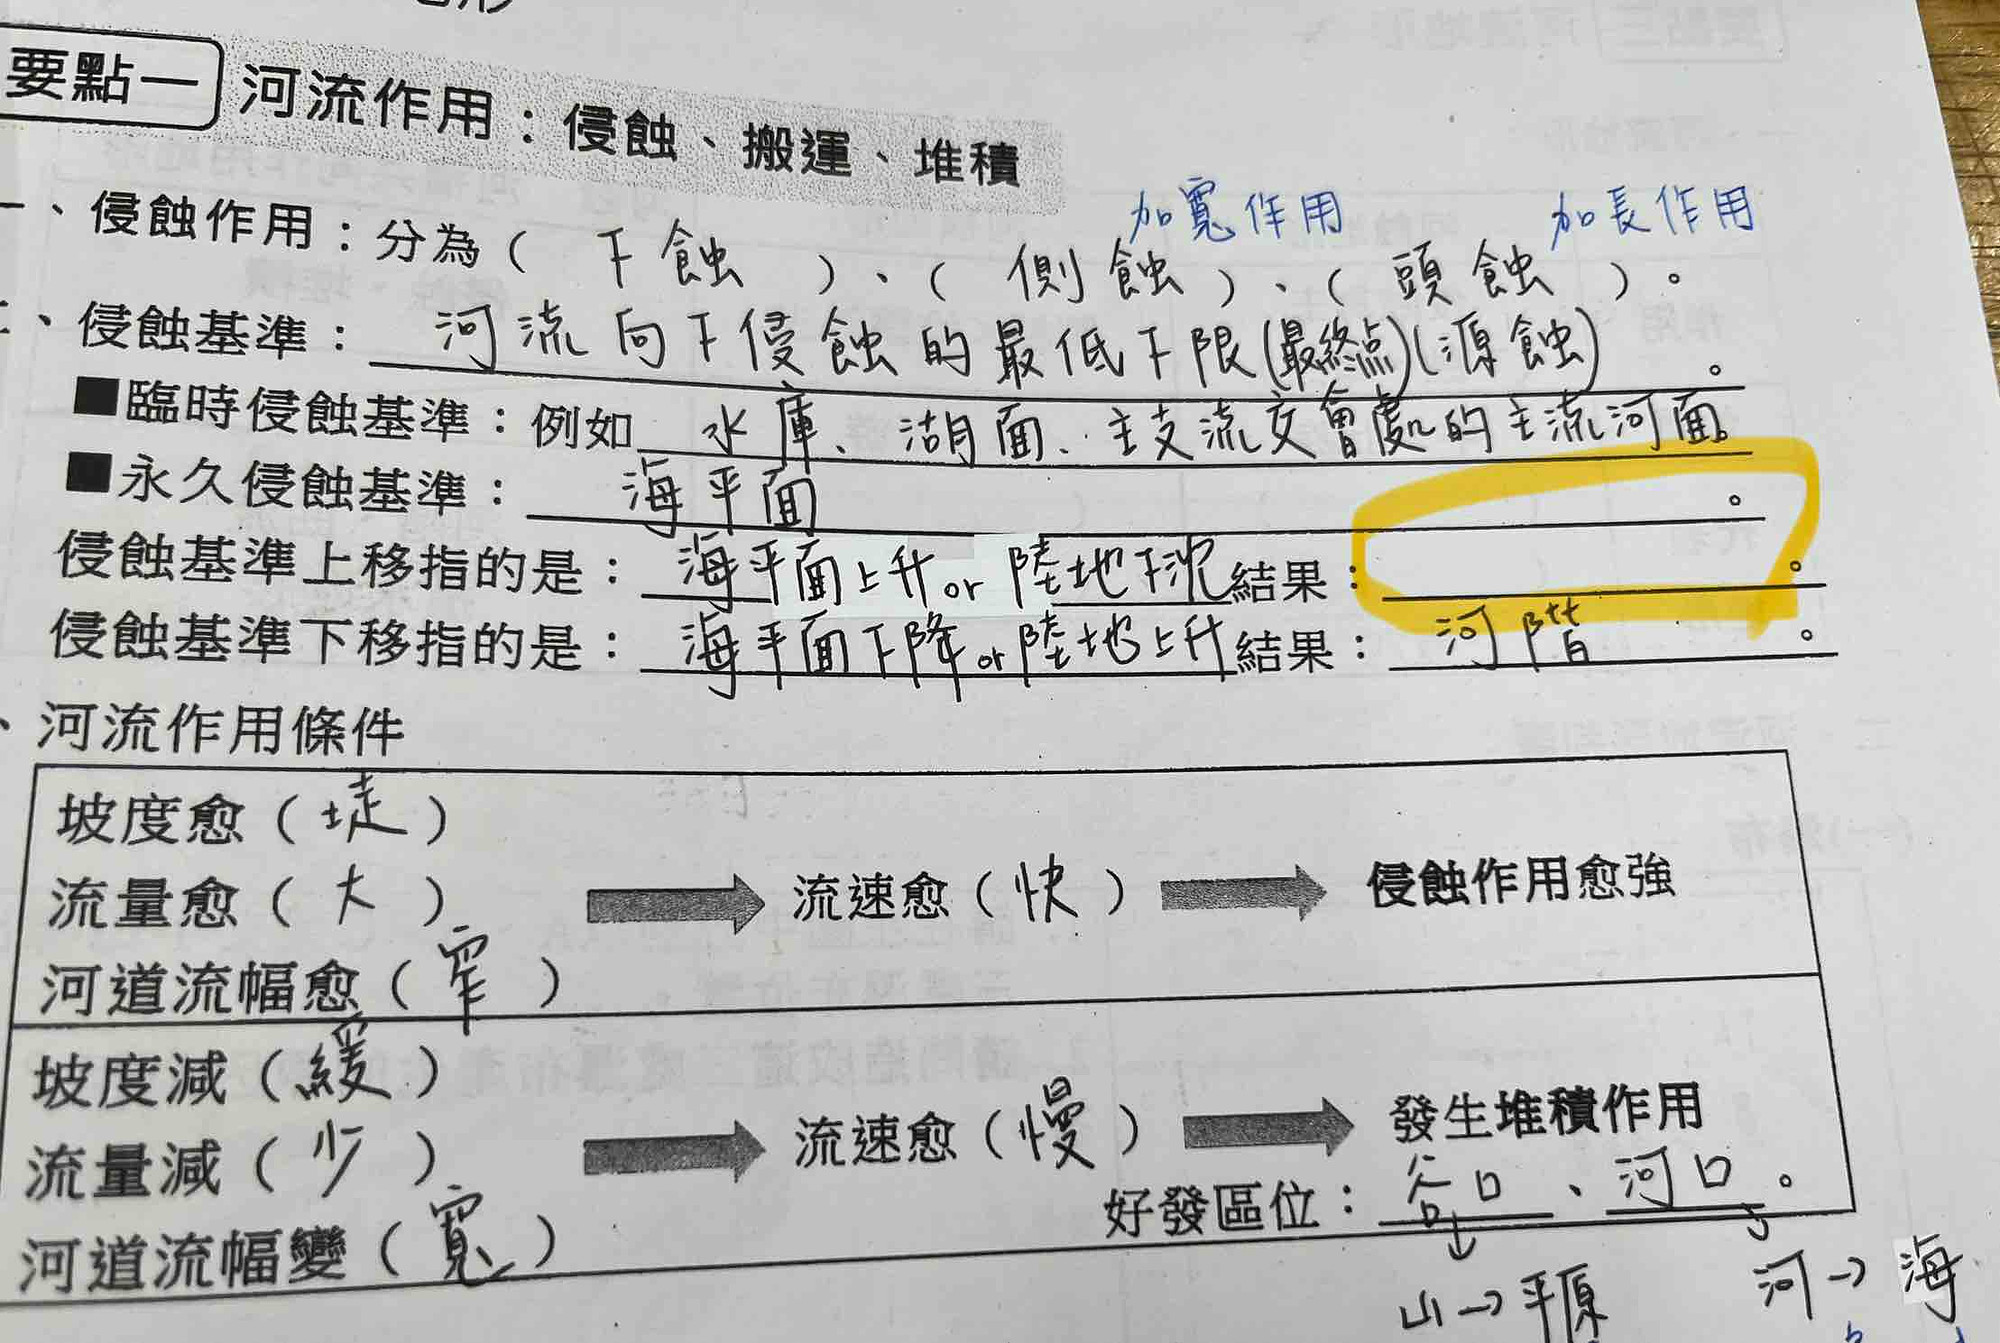 要點一 河流作用：侵蝕、搬運、堆積
加寬作用 加長作用
一、侵蝕作用：分為（下蝕）、（側蝕）、（頭蝕）。
、侵蝕基準：河流向下侵蝕的最低下限(最終点)(源蝕)。
■臨時侵蝕基準：例如水庫、湖面、主支流交會處的主流河面。
■永久侵蝕基準：海平面。
侵蝕基準上移指的是：海平面上升or陸地下沈結果：。
侵蝕基準下移指的是：海平面下降or陸地上升結果：河階。
、河流作用條件
坡度愈（陡）
流量愈（大） 流速愈（快） 侵蝕作用愈強
河道流幅愈（窄）
坡度減（緩）
流量減（少） 流速愈（慢） 發生堆積作用
好發區位：谷口、河口。
河道流幅變（寬）
山→平原 河→海